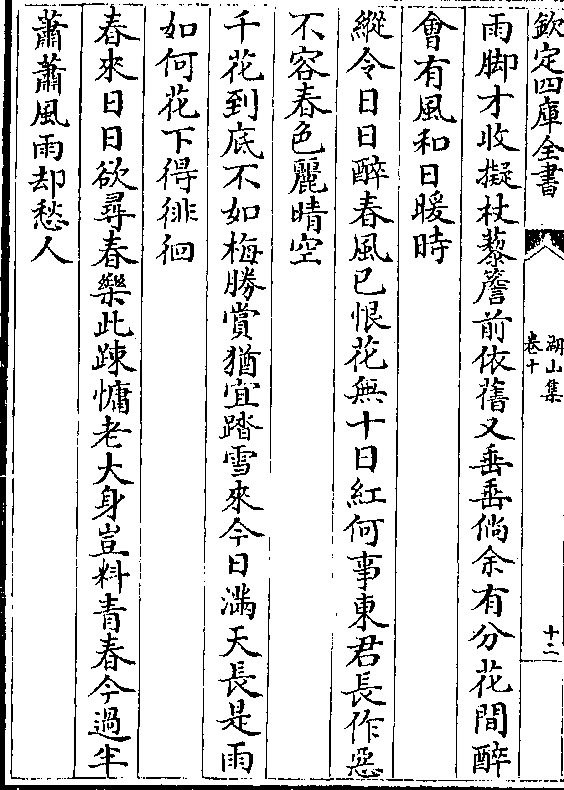 欽定四庫全書
湖山集
卷十
十二
雨脚才收擬杖藜簷前依舊又垂垂倘余有分花間醉
會有風和日暖時
縱令日日醉春風已恨花無十日紅何事東君長作惡
不容春色麗晴空
千花到底不如梅勝賞猶宜踏雪來今日滿天長是雨
如何花下得徘徊
春來日日欲尋春樂此踈慵老大身豈料青春今過半
蕭蕭風雨却愁人